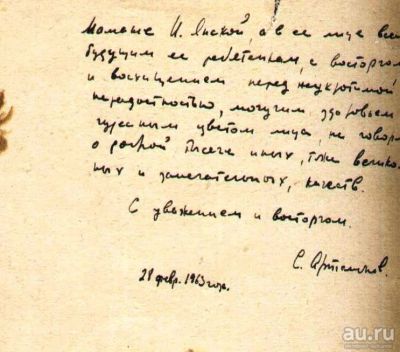 Мамаше И. Янской, а в ее лице всем
будущим ее ребятенкам, с восторгом
и восхищением перед неукротимой
могучим здоровьем
чудесным цветом лица, не говоря
о доброй тысяче иных, тоже велико-
ных и замечательных, качеств.
С уважением и восторгом.
С.
28 февр. 1963 года.
au.ru